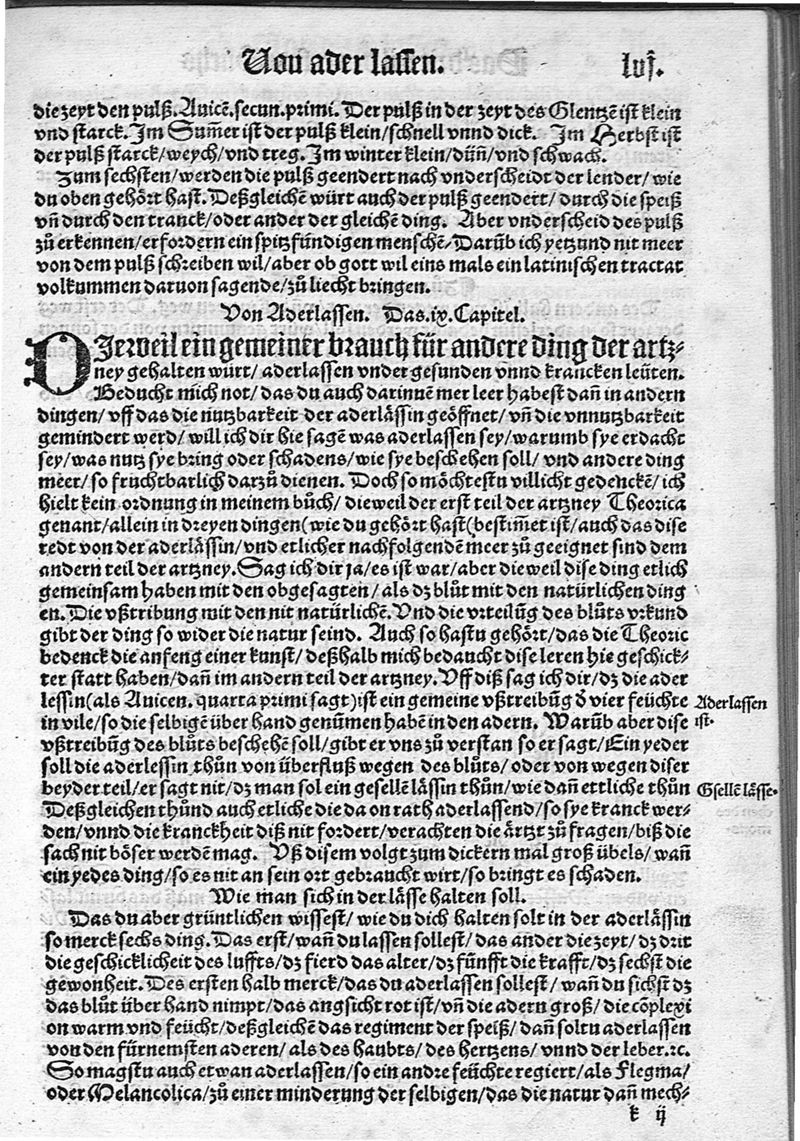 Von ader lassen. lvj.
die zeyt den pulß. Auicē. secun. primi. Der pulß in der zeyt des Glentzē ist klein
vnd starck. Im Sum̄er ist der pulß klein/schnell vnnd dick. Im Herbst ist
der pulß starck/weych/vnd treg. Im winter klein/dün̄/vnd schwach.
Zum sechsten/werden die pulß geendert nach vnderscheidt der lender/wie
du oben gehört hast. Deßgleichē würt auch der pulß geendert/durch die speiß
vn̄ durch den tranck/oder ander der gleichē ding. Aber vnderscheid des pulß
zů erkennen/erfordern ein spitzfündigen menschē/Darūb ich yetzund nit meer
von dem pulß schreiben wil/aber ob gott wil eins mals ein latinischen tractat
volkummen daruon sagende/zů liecht bringen.
Von Aderlassen. Das .ix. Capitel.
DIerweil ein gemeiner brauch für andere ding der artz-
ney gehalten würt/aderlassen vnder gesunden vnnd krancken leüten.
Beducht mich not/das du auch darinnē mer leer habest dan̄ in andern
dingen/vff das die nutzbarkeit der aderlässin geöffnet/vn̄ die vnnutzbarkeit
gemindert werd/will ich dir hie sagē was aderlassen sey/warumb sye erdacht
sey/was nutz sye bring oder schadens/wie sye beschehen soll/vnd andere ding
meer/so fruchtbarlich darzů dienen. Doch so möchtestu villicht gedenckē/ich
hielt kein ordnung in meinem bůch/dieweil der erst teil der artzney Theorica
genant/allein in dreyen dingen(wie du gehört hast(bestim̄et ist/auch das dise
redt von der aderlässin/vnd etlicher nachfolgendē meer zů geeignet sind dem
andern teil der artzney. Sag ich dir ja/es ist war/aber dieweil dise ding etlich
gemeinsam haben mit den obgesagten/als dz blůt mit den natürlichen ding
en. Die vßtribung mit den nit natürlichē. Vnd die vrteilūg des blůts vrkund
gibt der ding so wider die natur seind. Auch so hastu gehört/das die Theoric
bedenck die anfeng einer kunst/deßhalb mich bedaucht dise leren hie geschick-
ter statt haben/dan̄ im andern teil der artzney. Vff diß sag ich dir/dz die ader
lessin(als Auicen. quarta primi sagt)ist ein gemeine vßtreibūg d̄ vier feüchte Aderlassen
in vile/so die selbigē über hand genūmen habē in den adern. Warūb aber dise ist.
vßtreibūg des blůts beschehē soll/gibt er vns zů verstan so er sagt/Ein yeder
soll die aderlessin thůn von überfluß wegen des blůts/oder von wegen diser
beyder teil/er sagt nit/dz man sol ein gesellē lässin thůn/wie dan̄ ettliche thůn Gsellē lässe.
Deßgleichen thůnd auch etliche die da on rath aderlassend/so sye kranck wer-
den/vnnd die kranckheit diß nit fordert/verachten die ärtzt zů fragen/biß die
sach nit böser werdē mag. Vß disem volgt zum dickern mal groß übels/wan̄
ein yedes ding/so es nit an sein ort gebraucht wirt/so bringt es schaden.
Wie man sich in der lässe halten soll.
Das du aber grüntlichen wissest/wie du dich halten solt in der aderlässin
so merck sechs ding. Das erst/wan̄ du lassen sollest/das ander die zeyt/dz drit
die geschicklicheit des luffts/dz fierd das alter/dz fünfft die krafft/dz sechst die
gewonheit. Des ersten halb merck/das du aderlassen sollest/wan̄ du sichst dz
das blůt über hand nimpt/das angsicht rot ist/vn̄ die adern groß/die cōplexi
on warm vnd feücht/deßgleichē das regiment der speiß/dan̄ soltu aderlassen
von den fürnemsten aderen/als des haubts/des hertzens/vnnd der leber. ꝛc.
So magstu auch etwan aderlassen/so ein andre feüchte regiert/als Flegma/
oder Melancolica/zů einer minderung der selbigen/das die natur dan̄ mech-
k ij